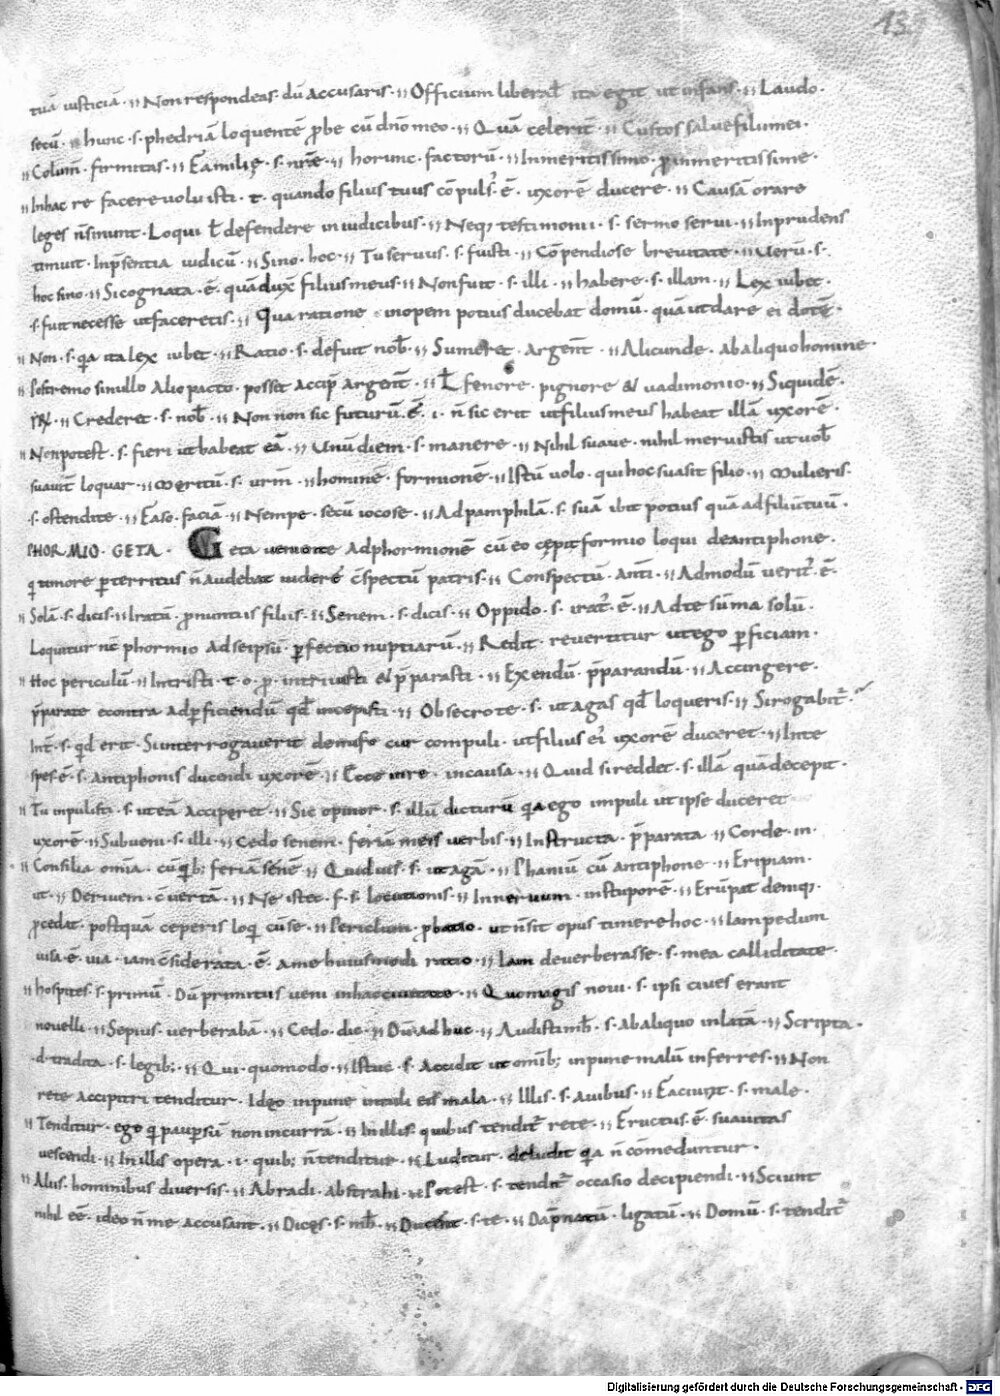 137
tuā iusticiā · Non respondeas dū accusaris · Officium liberał ita egit ut infans · Laudo ·
secū · hunc · s · phedriā loquentē ꝓbe cū dn̄o meo · Quā celerit̄ · Custos salue filii mei ·
Colum̄ · firmitas · Familię · s · nr̄ę · horunc · factorū · Inmeritissimo · ꝓ inmeritissime ·
In hac re facere voluisti · t · quando filius tuus cōpuls᾿ ē · uxorē ducere · Causā orare
leges n̄ sinunt · Loqui ł defendere in iudicibus · Neq; testimonii · s · sermo servi · Inprudens
timuit · In p̄sentia iudicū · Sino · hoc · Tu servus · s · fuisti · Cōpendiose brevitate · Verū · s ·
hoc sino · Si cognata · ē · quā duxit filius meus · Non fuit · s · illi · habere · s · illam · Lex iubet ·
s · fuit necesse ut faceretis · Qua ratione · inopem potius ducebat domū · quā ut dare ei dotē ·
Non · s · q̄a ita lex iubet · Ratio · s · defuit nob̄ · Sumeret · argent̄ · Alicunde · ab aliquo homine ·
Postremo si nullo alio pacto · posset accip̄ argent̄ · ł fenore · pignore & vadimonio · Siquidē ·
Crederet · s · nob̄ · Non non sic futurū · ē · i · n̄ sic erit ut filius meus habeat illā uxorē ·
Non potest · s · fieri ut habeat eā · Unū diem · s · manere · Nihil suave · nihil meruistis ut vob̄
suavit̄ loquar · Meritū · s · urm̄ · hominē · formionē · Istū volo · qui hoc suasit filio · Mulieris ·
s · ostendite · Faso · faciā · Nempe · secū iocose · Ad pamphilā · s · suā ibit potius quā ad filiū tuū ·
PHORMIO · GETA · Geta veniente ad phormionē cū eo cępit formio loqui de antiphone ·
q̄ timore ꝑterritus n̄ audebat videre c̄spectum patris · Conspectū · anti · Admodū verit᾿ · ē ·
Solā · s · dicis · Iratū · ꝓnuntius filius · Senem · s · dicis · Oppido · s · irat᾿ · ē · Ad te summa solū ·
Loquitur nc̄ phormio ad seipsū · ꝑfectio nuptiarū · Redit · revertitur ut ego ꝑficiam ·
Hoc periculū · Intristi · t · o · ꝓ · intrivisti & p̄parasti · Exendū · p̄parandū · Accingere ·
p̄parate econtra ad ꝑficiendū qd̄ incepisti · Obsecro te · s · ut agas qd̄ loqueris · Si rogabit̄ ·
Int̄ · s · qd̄ erit · Si interrogaverit demifo cur compuli · ut filius ei᾿ uxorē duceret · In te
spes · ē · s · antiphonis ducendi uxorē · Ecce · in re · in causa · Quid si reddet · s · illā quā decepit ·
Tu impulisti · s · ut eā acciperet · Sic opinor · s · illū dicturū q̄a ego impuli ut ipse duceret
uxorē · Subveni · s · illi · Cedo senem · feriā meis verbis · Instructa · p̄parata · Corde · in ·
Consilia om̄ia · cū q̄b; feriā senē · Quid vis · s · ut agā · Phaniū cū antiphone · Eripiam ·
ut · Derivem · c̄vertā · Ne istec · f · s · locutionis · In nervum · in stuporē · Erūpat deniq; ·
ꝓcedit · postquā ceperis loq̄ cū se · Periclum · ꝓbatio · ut n̄ sit opus timere hoc · Iam pedum
visa · ē · via · iam c̄siderata · ē · a me huiusmodi ratio · Iam deverberasse · s · mea calliditate ·
hospites · s · primū · Dū primitus veni in hac civitate · Quo magis novi · s · ipsi cives erant
novelli · Sepius · verberabā · Cedo · dic · Dū ad huc · Audisti m̄b · s · ab aliquo in latā · Scripta ·
d · tradita · s · legib; · Qui · quomodo · Istuc · s · Accidit ut om̄ib; inpune malū inferres · Non
rete accipitri tenditur · Ideo inpune intuli eis mala · Illis · s · avibus · Faciunt · s · male ·
Tenditur · ergo q̄ paup̄sū non incurrā · In illis quibus tendit᾿ rete · Fructus · ē · suavitas
vescendi · In illis opera · i · quib; n̄ tenditur · Luditur · deludit q̄a n̄ comeduntur ·
Aliis · hominibus diversis · Abradi · abstrahi · Potest · s · tendit᾿ occasio decipiendi · Sciunt
nihil eē · ideo n̄ me accusant · Dices · s · m̄b · Ducent · s · te · Dap̄natū · ligatū · Domū · s · tendit᾿
Digitalisierung gefördert durch die Deutsche Forschungsgemeinschaft · DFG